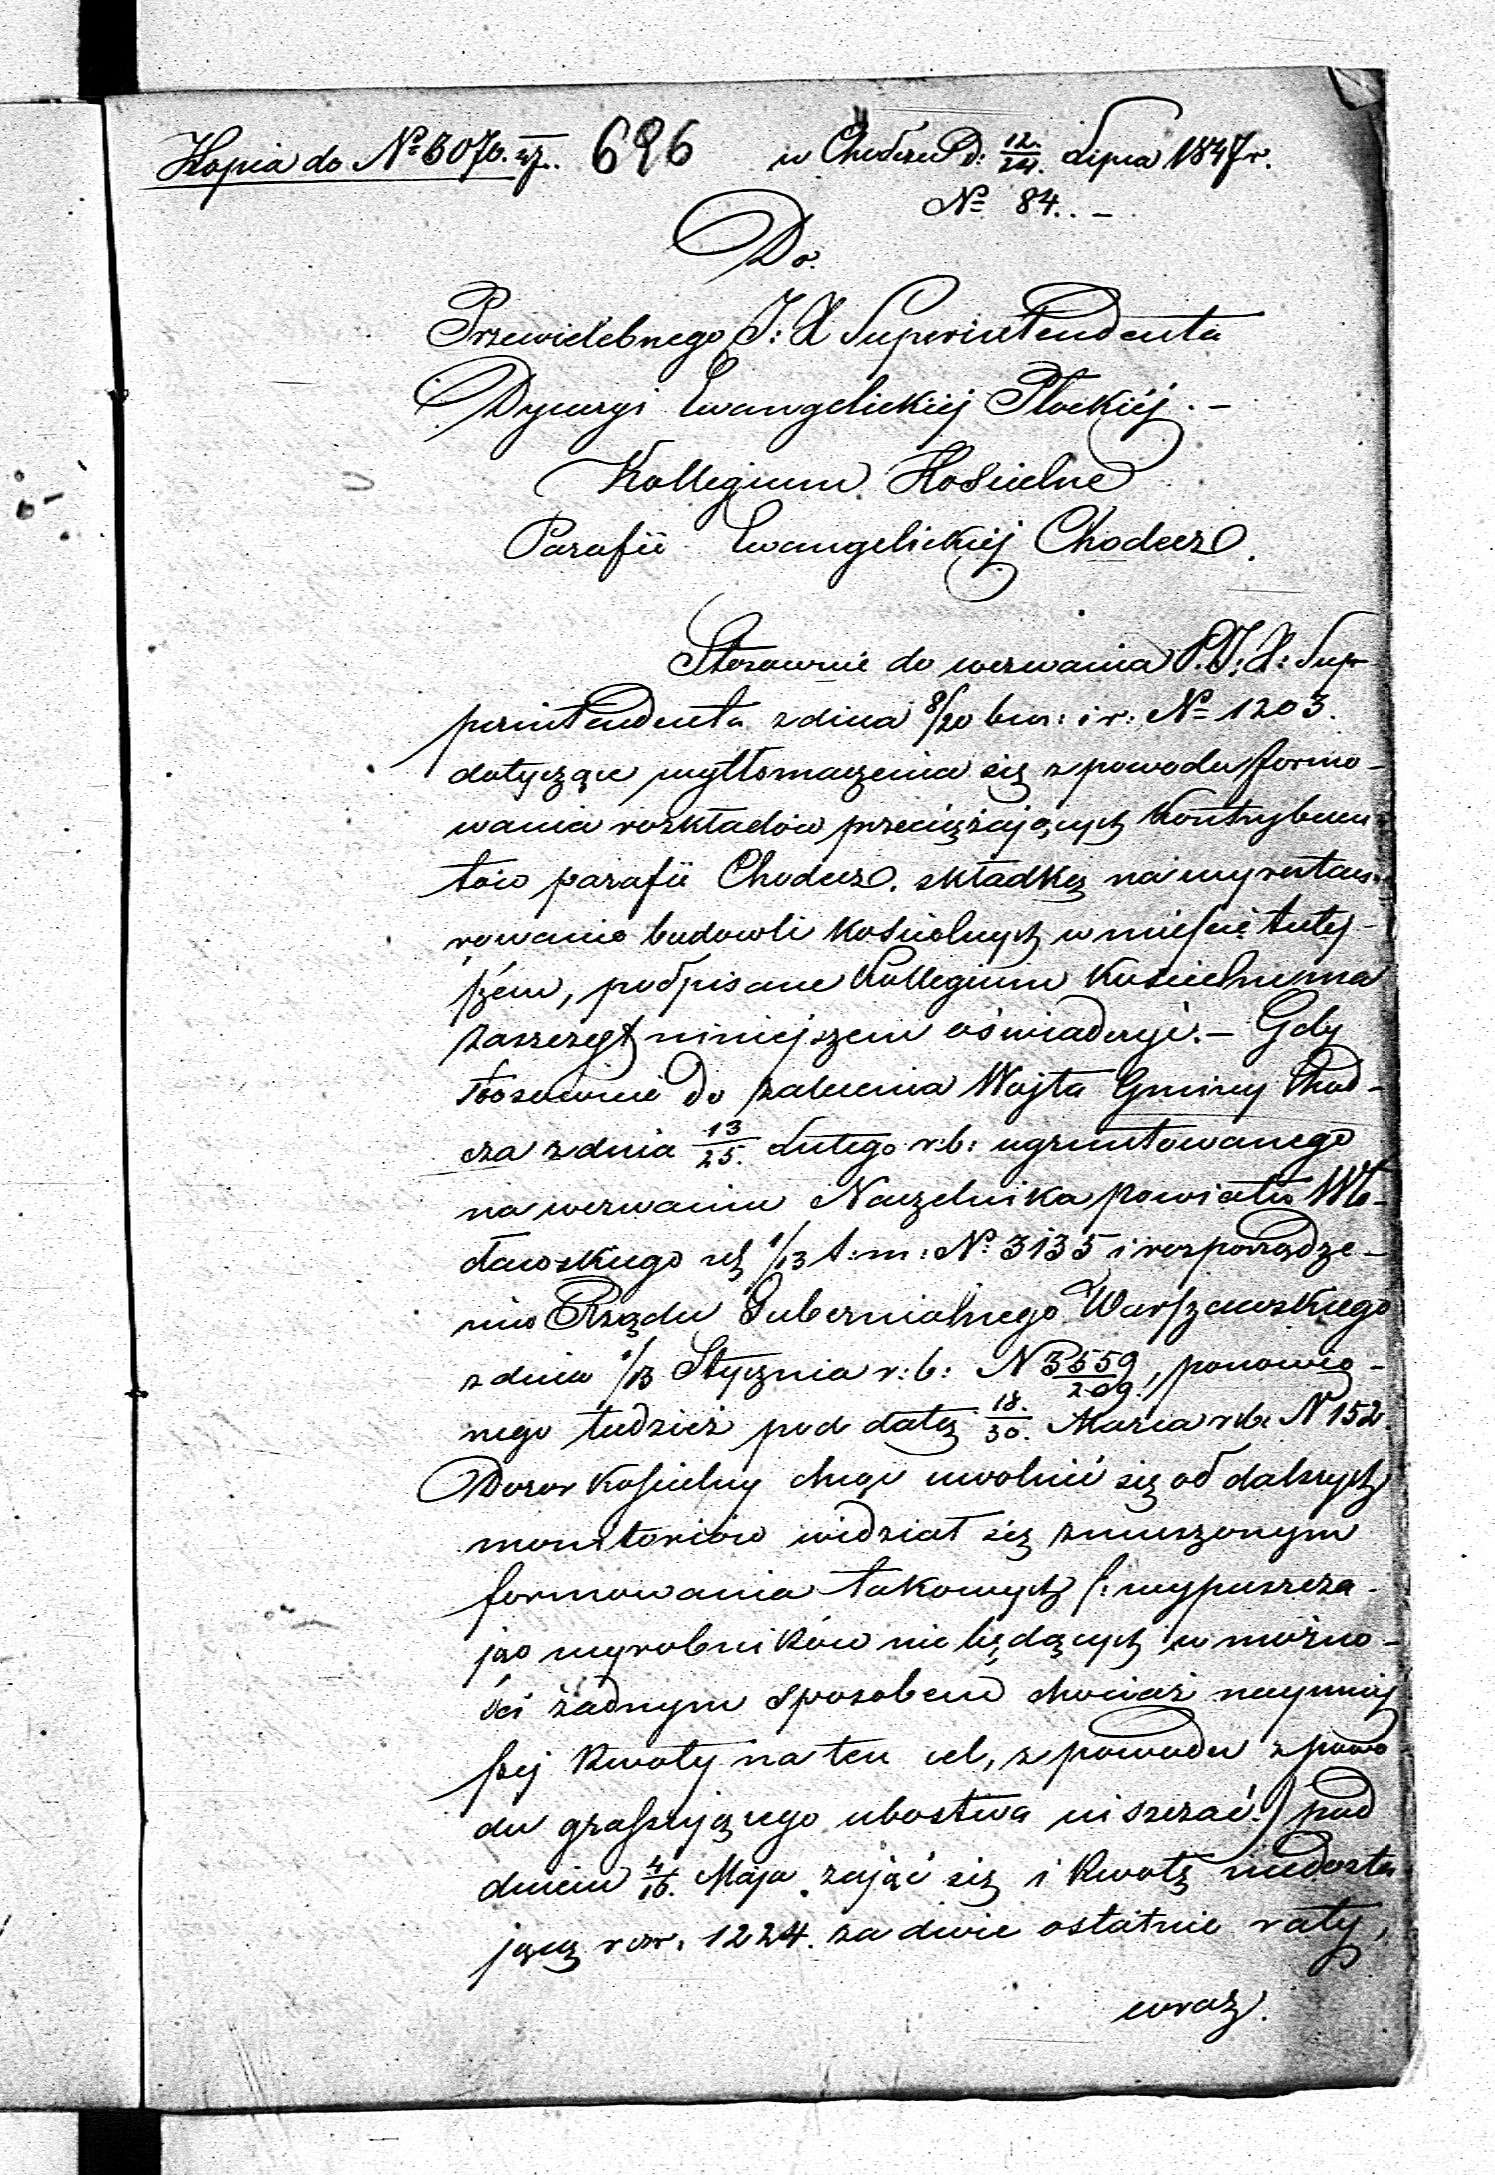 Kopia do № 6070. 696 w Chodczu D: 12/24. Lipca 1847 r.
№ 84..–
Do.
Przewielebnego J: X Superintendenta
Dyecezyi Ewangelickiéj Płockiéj.–
Kollegium Kościelne
Parafii Ewangelickiéj Chodecz.
Stosownie do wezwania P. J: X: Supe-
printendenta z dnia 8/20 b.m: i r: № 1203.
dotyczące wytłomaczenia się z powodu formo-
wania rozkładów przeciążających kontrybuen-
tów parafii Chodecz. składką na wyrestau-
rowanie budowli kościelnych w mieście tutej-
szém, podpisane Kollegium Kościelne ma
zaszczyt niniejszem oświadczyć.– Gdy
stosownie do zalecenia Wójta Gminy Chod-
cza z dnia 13/25. Lutego r:b: ugruntowanego
na wezwaniu Naczelnika powiatu Wło-
cławskiego z d. 1/13 t:m: № 3135 i rozporządze-
niu Rządu Gubernialnego Warszawskiego
z dnia 1/13 Stycznia r:b: N 3559/209., ponowio-
nego tudzież pod datą 18./30. Marca r:b: N 152.
Dozor Kościelny chcąc uwolnić się od dalszych
monitoriów widział się zmuszonym
formowania takowych /: wypuszcza-
jąc wyrobników nie będących w możno-
ści żadnym sposobem chociaż naymniej
szej kwoty na ten cel, z powodu z powo
du grassującego ubostwa uiszczać :/ pod
dniem 4/16. Maja zająć się i kwotę niedosta
jącą rsr. 1224. za dwie ostatnie raty,
wraz.